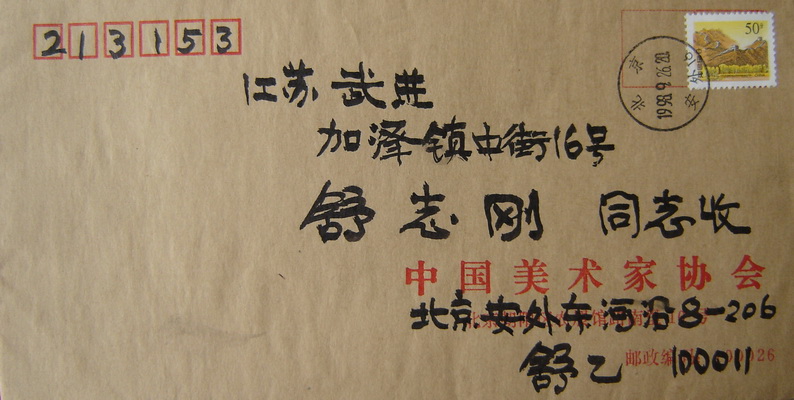 213153
50分
北京
1998.9.26.20
江苏 武进
加泽镇中街16号
舒志刚 同志收
中国美术家协会
北京安外东河沿8-206
邮政编
舒乙 100011